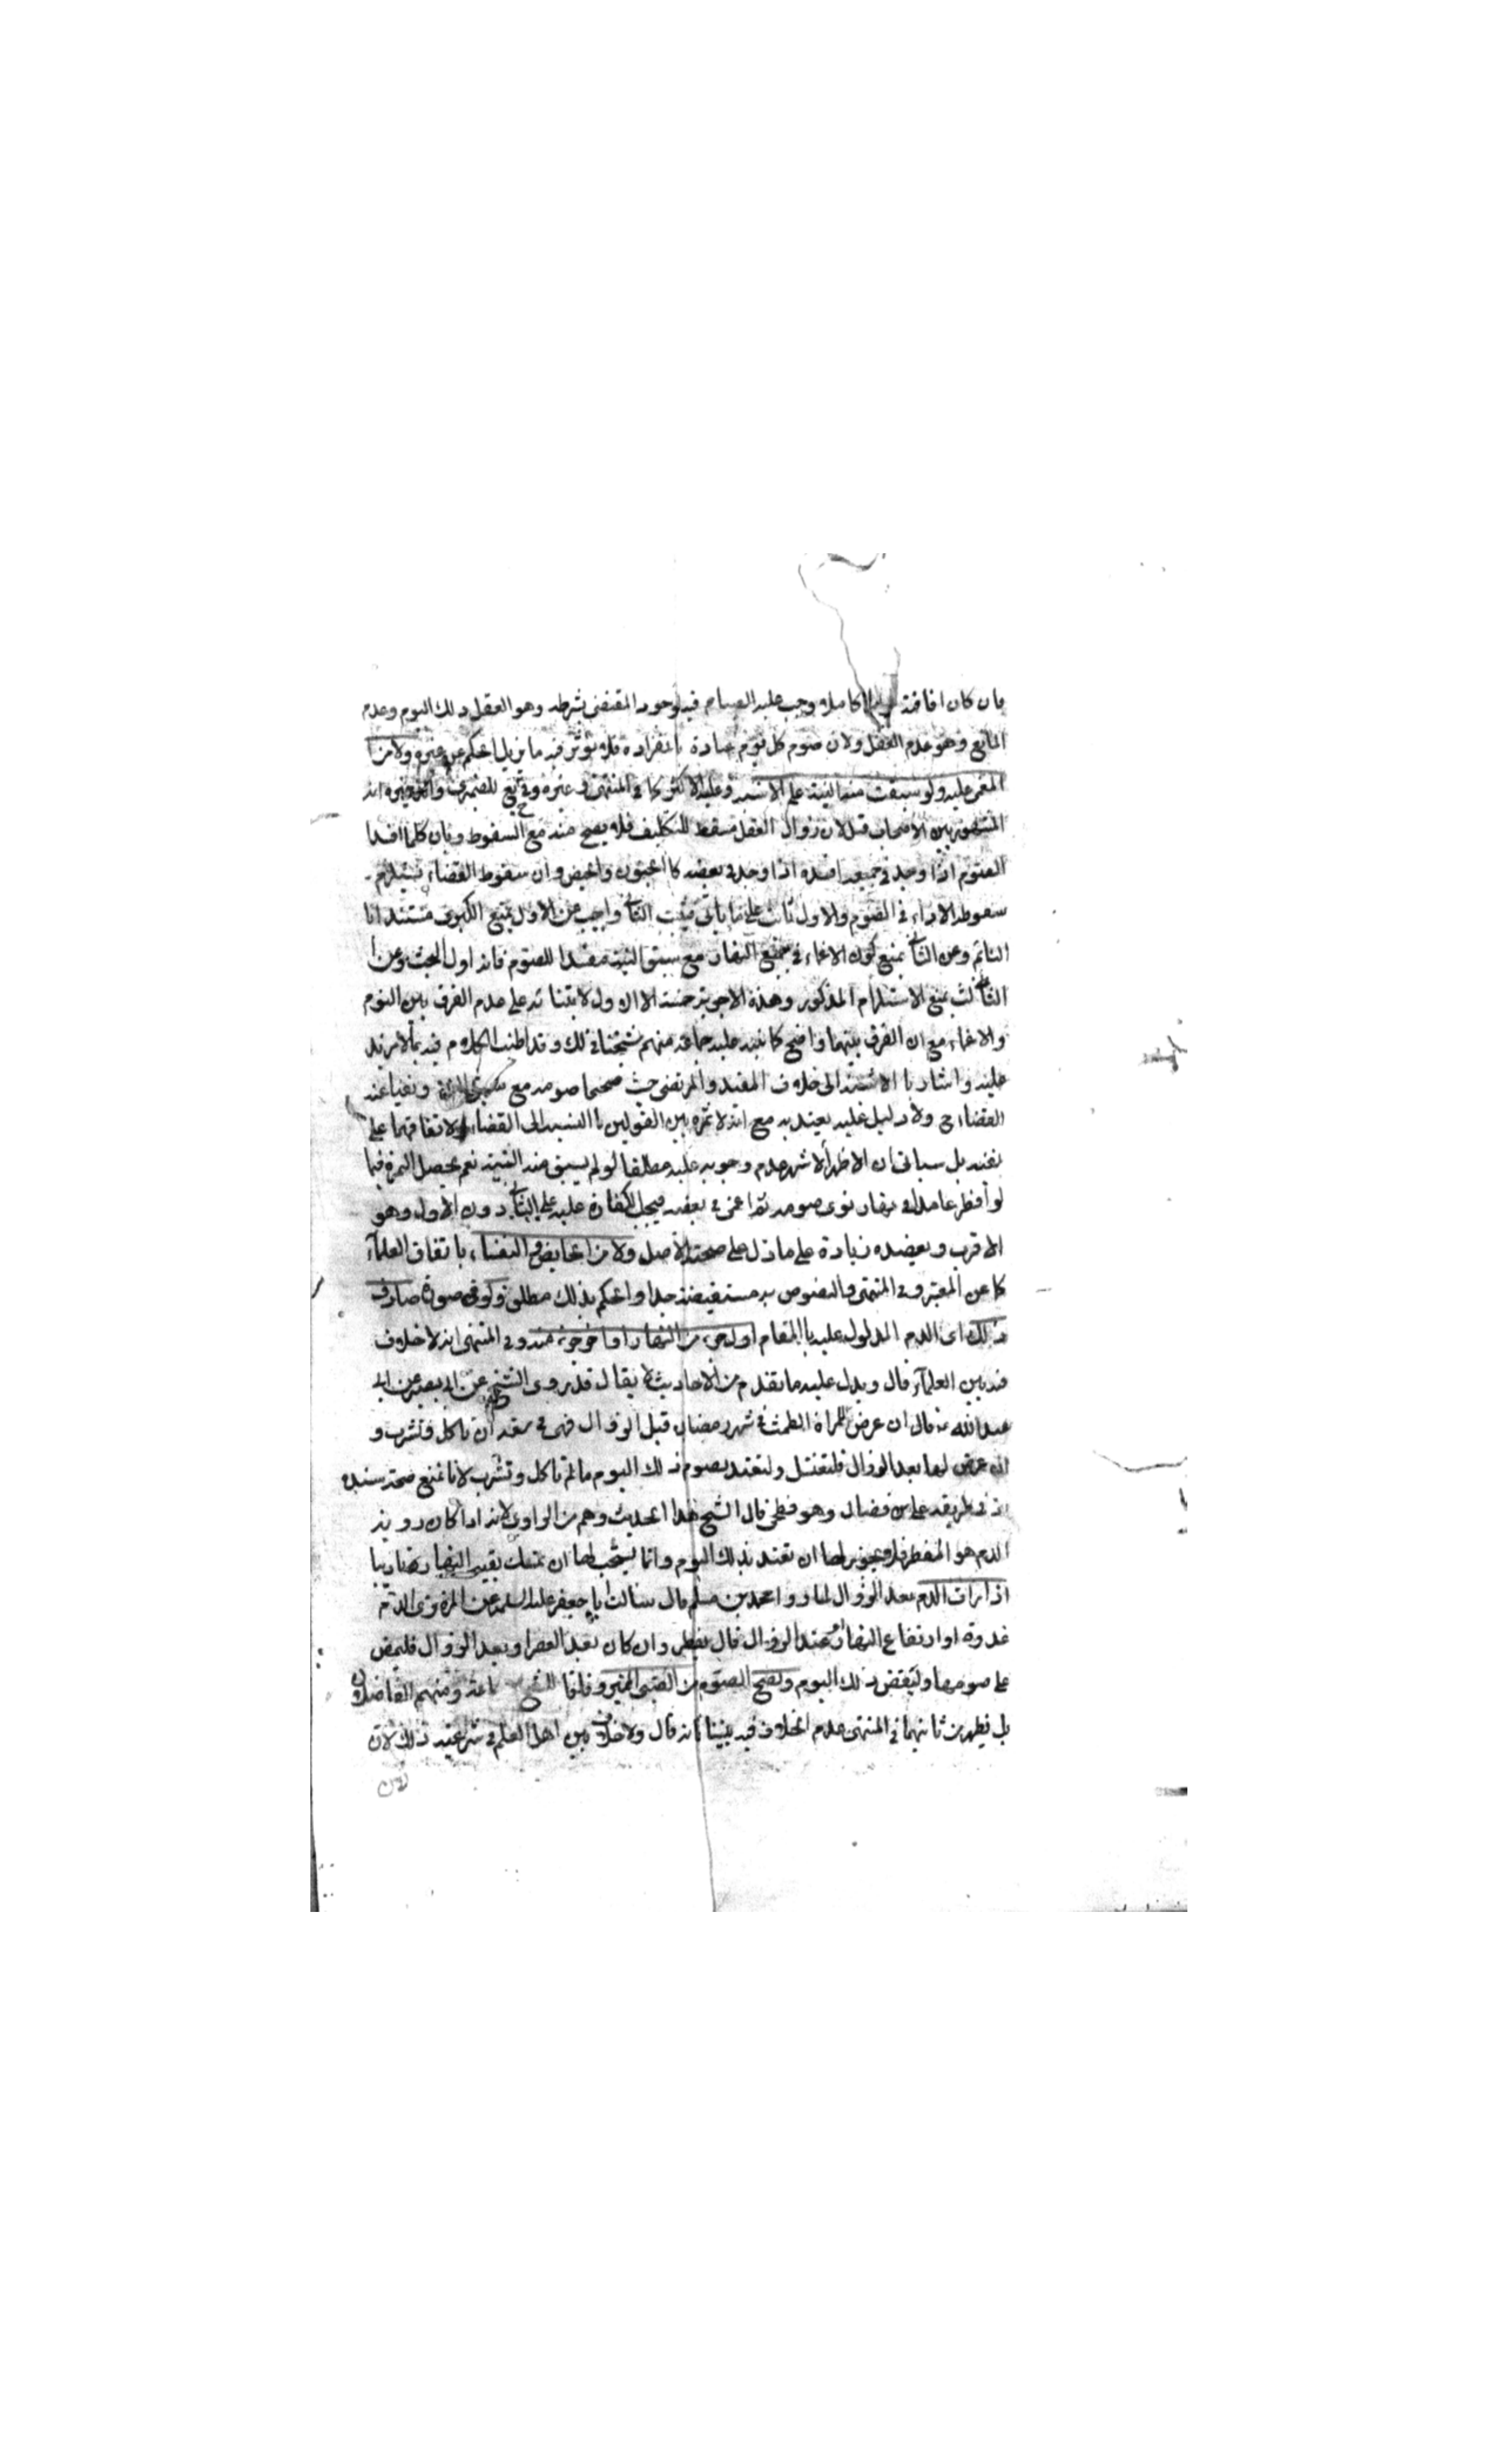 فان كان افاقته كاملا وجب عليه الصيام فيه لوجود المقتضى بشرطه وهو العقل ذلك اليوم وعدم
المانع وهو عدم العقل ولان صوم كل يوم عبادة بانفراده فلا يؤثر فيه ما يزيل الحكم عن غيره ولا من
المغمى عليه ولو سبقت منه النية على الاشبه وعليه الاكثر كما في المنتهى وغيره وفي للصيمرى وغيره انه
المشهور بين الاصحاب قيل لان زوال العقل مسقط للتكليف فلا يصح منه مع السقوط وبان كلما افسد
الصوم اذا وجد في جميعه افسده اذا وجد في بعضه كالجنون والحيض وان سقوط القضاء يستلزم
سقوط الاداء في الصوم والاول ثابت على ما ياتي فيثبت الثاني واجيب عن الاول بمنع الكبرى مستندا
النائم وعن الثاني بمنع كون الاغماء في جميع النهار مع سبق النية مفسدا للصوم فانه اول البحث وعن
الثالث بمنع الاستلزام المذكور وهذه الاجوبة حسنة الا الاول لابتنائه على عدم الفرق بين النوم
والاغماء مع ان الفرق بينهما واضح كما نبه عليه جماعة منهم شيخنا في لك وقد اطنب الكلام فيه بما لا مزيد
عليه واشار بالاشبه الى خلاف المفيد والمرتضى حيث صححا صومه مع سبق النية ونفيا عنه
القضاء ح ولا دليل عليه يعتد به مع انه لا ثمرة بين القولين بالنسبة الى القضاء لاتفاقهما على
نفيه بل سياتى ان الاظهر الاشهر عدم وجوبه عليه مطلقا لو لم يسبق منه النية نعم يحصل الثمرة فيما
لو افطر عامدا في نهار نوى صومه ثم اغمى في بعضه فيجب الكفارة عليه على الثاني دون الاول وهو
الاقرب ويعضده زيادة على ما دل على صحته الاصل ولا من الحايض والنفساء باتفاق العلماء
كما عن المعتبر وفي المنتهى والنصوص به مستفيضة جدا والحكم بذلك مطلق ولو في صورة صادف
ذلك اى الدم المدلول عليه بالمقام اول جزء من النهار او اخر جزء منه وفي المنتهى انه لا خلاف
فيه بين العلماء قال ويدل عليه ما تقدم من الاحاديث لا يقال قد روى الشيخ عن ابى بصير عن ابى
عبد الله ع قال ان عرض للمراة الطمث في شهر رمضان قبل الزوال فهى في سعة ان تاكل وتشرب و
ان عرض لها بعد الزوال فلتغتسل ولتعتد بصوم ذلك اليوم ما لم تاكل وتشرب لانا نمنع صحة سنده
اذ في طريقه على بن فضال وهو فطحى قال الشيخ هذا الحديث وهم من الراوى لانه اذا كان روية
الدم هو المفطر فلا يجوز لها ان تعتد بذلك اليوم وانما يستحب لها ان تمسك بقية النهار تاديبا
اذا رات الدم بعد الزوال لما رواه محمد بن مسلم قال سالت ابا جعفر عليه السلم عن المراة ترى الدم
غدوة او ارتفاع النهار او عند الزوال قال تفطر وان كان بعد العصر او بعد الزوال فلتمض
على صومها ولتقض ذلك اليوم ويصح الصوم من الصبى المميز وفاقا للشيخ وجماعة ومنهم الفاضلان
بل يظهر من ثانيهما في المنتهى عدم الخلاف فيه بيننا فانه قال ولا خلاف بين اهل العلم في شرعية ذلك لان